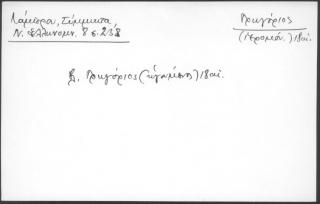 Λάμπρου, Σύμμικτα,
Ν. Ελληνομν. 8 σ. 238
Γρηγόριος
(ιερομόν.) 18 αἰ.
β. Γρηγόριος (ἡγούμενος) 18 αἰ.